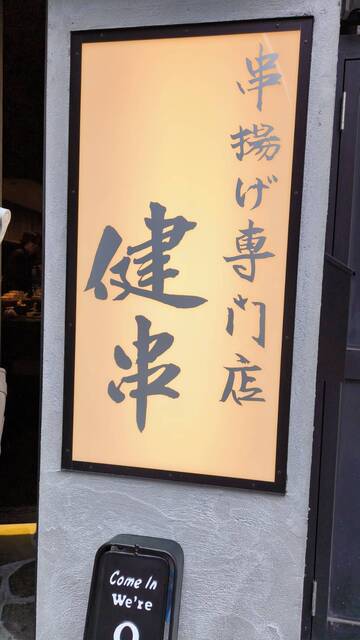 串揚げ専門店
健串
Come In
We're